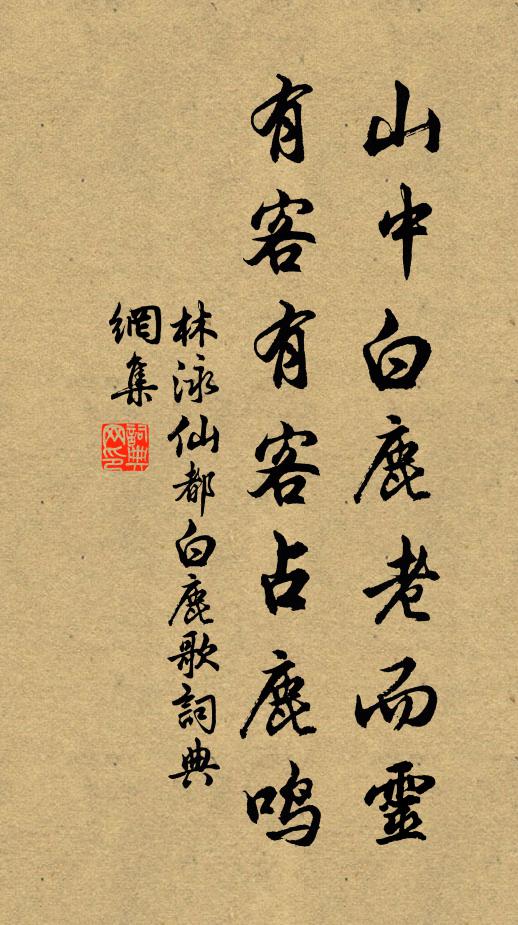 山中白鹿老而靈
有客有客占鹿鸣
林泳仙都白鹿歌詞典
網集
詞典
网印